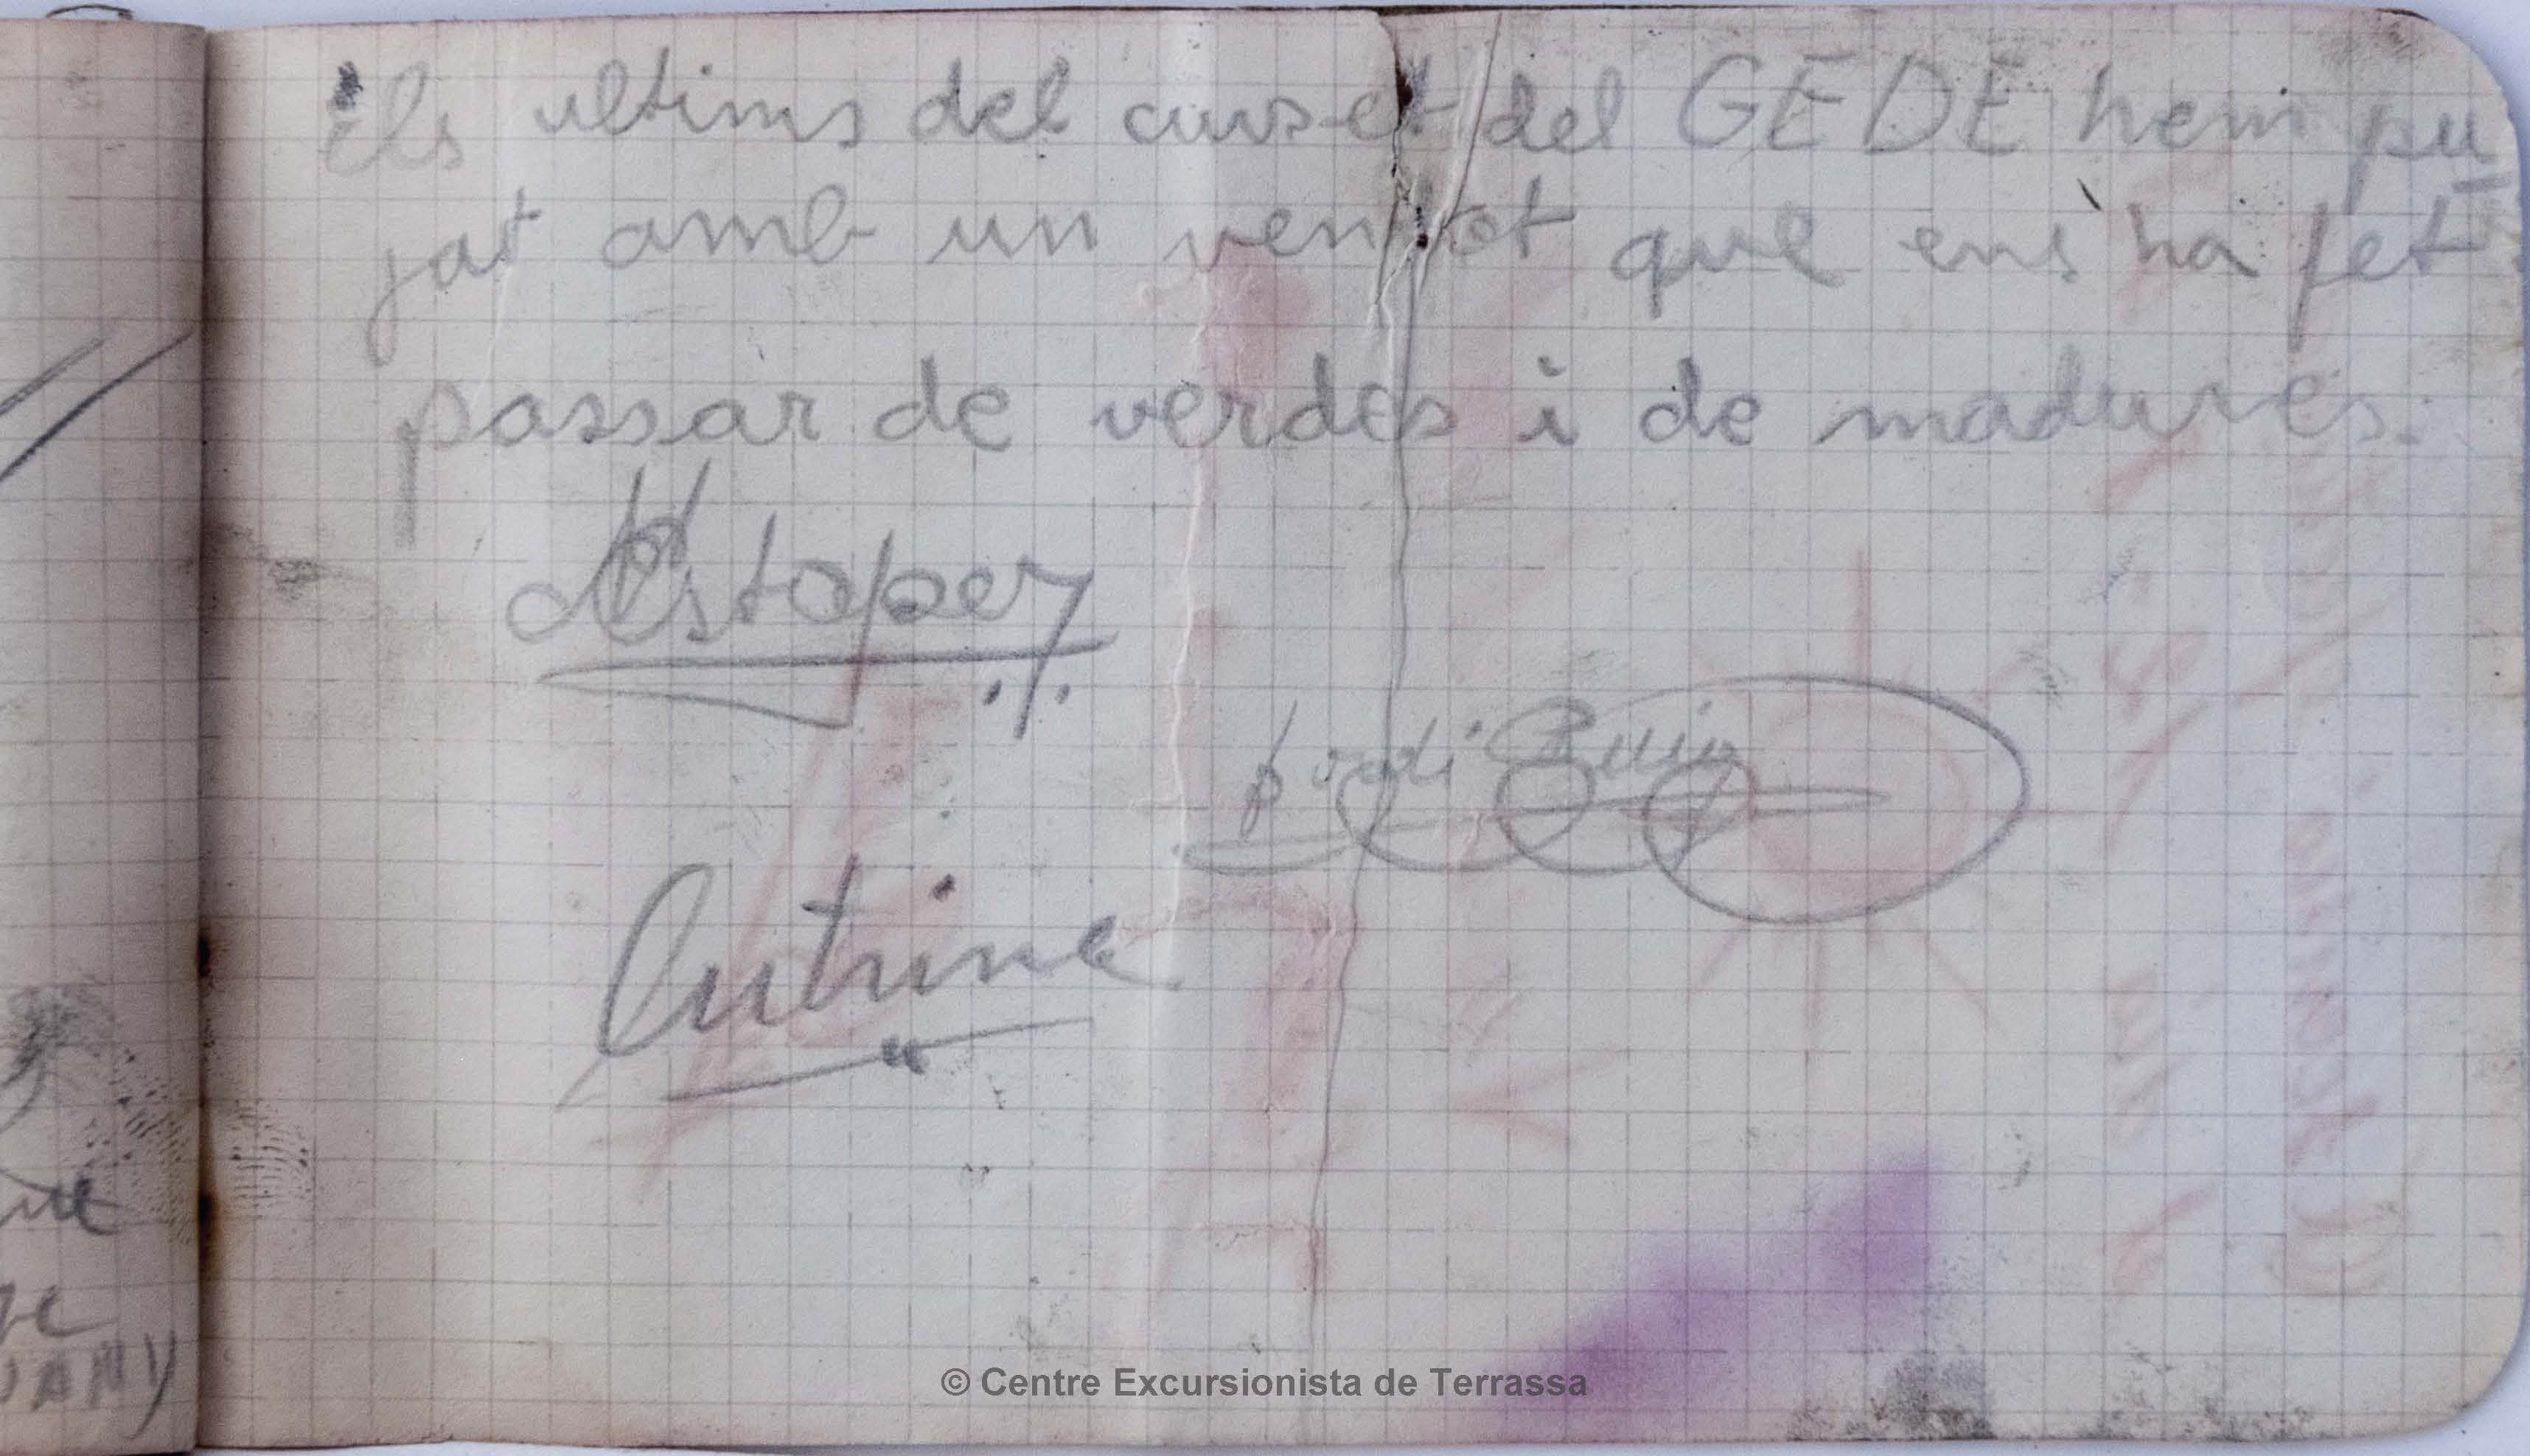 Els ultims del curset del GEDE hem pu
jat amb un ventot que ens ha fet
passar de verdes i de madures.
Jordi Ruiz
© Centre Excursionista de Terrassa